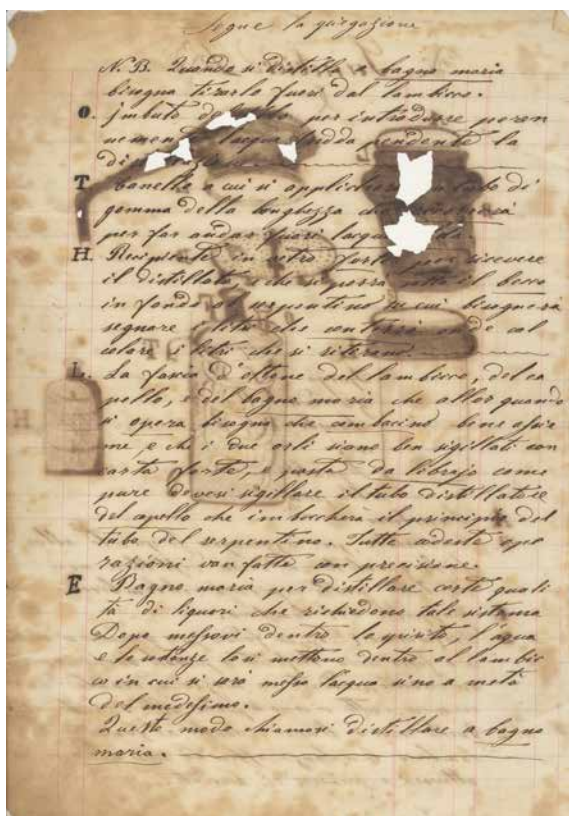 Segue la spiegazione
N.B. Quando si distilla a bagno maria
bisogna tirarlo fuori dal lambicco.
O. Imbuto di per introdurre peren
nemente l'acqua fredda pendente la
T cui si applicherà un tubo di
gomma della lunghezza che
per far andar fuori l'acqua
H. Recipiente in vetro forte per ricevere
il distillato, che si porrà sotto il becco
in fondo al serpentino in cui bisognerà
segnare i litri che conterrà onde cal
colare i litri che si ritirano.
L. La fascia d'ottone del lambicco, del ca
pello, e del bagno maria che allorquando
si opera bisogna che combacino bene assie
me, e che i due orli siano ben sigillati con
carta forte, e pasta da librajo come
pure devesi sigillare il tubo distillatore
del capello che imboccherà il principio del
tubo del serpentino. Tutte codeste ope
razioni van fatte con precisione.
E Bagno maria per distillare certe quali
tà di liquori che richiedono tale sistema
Dopo messovi dentro lo spirito, l'aqua
e le sostanze lo si mettono dentro al lambic
co in cui si sarà messo l'acqua sino a metà
del medesimo.
Questo modo chiamasi distillare a bagno
maria.